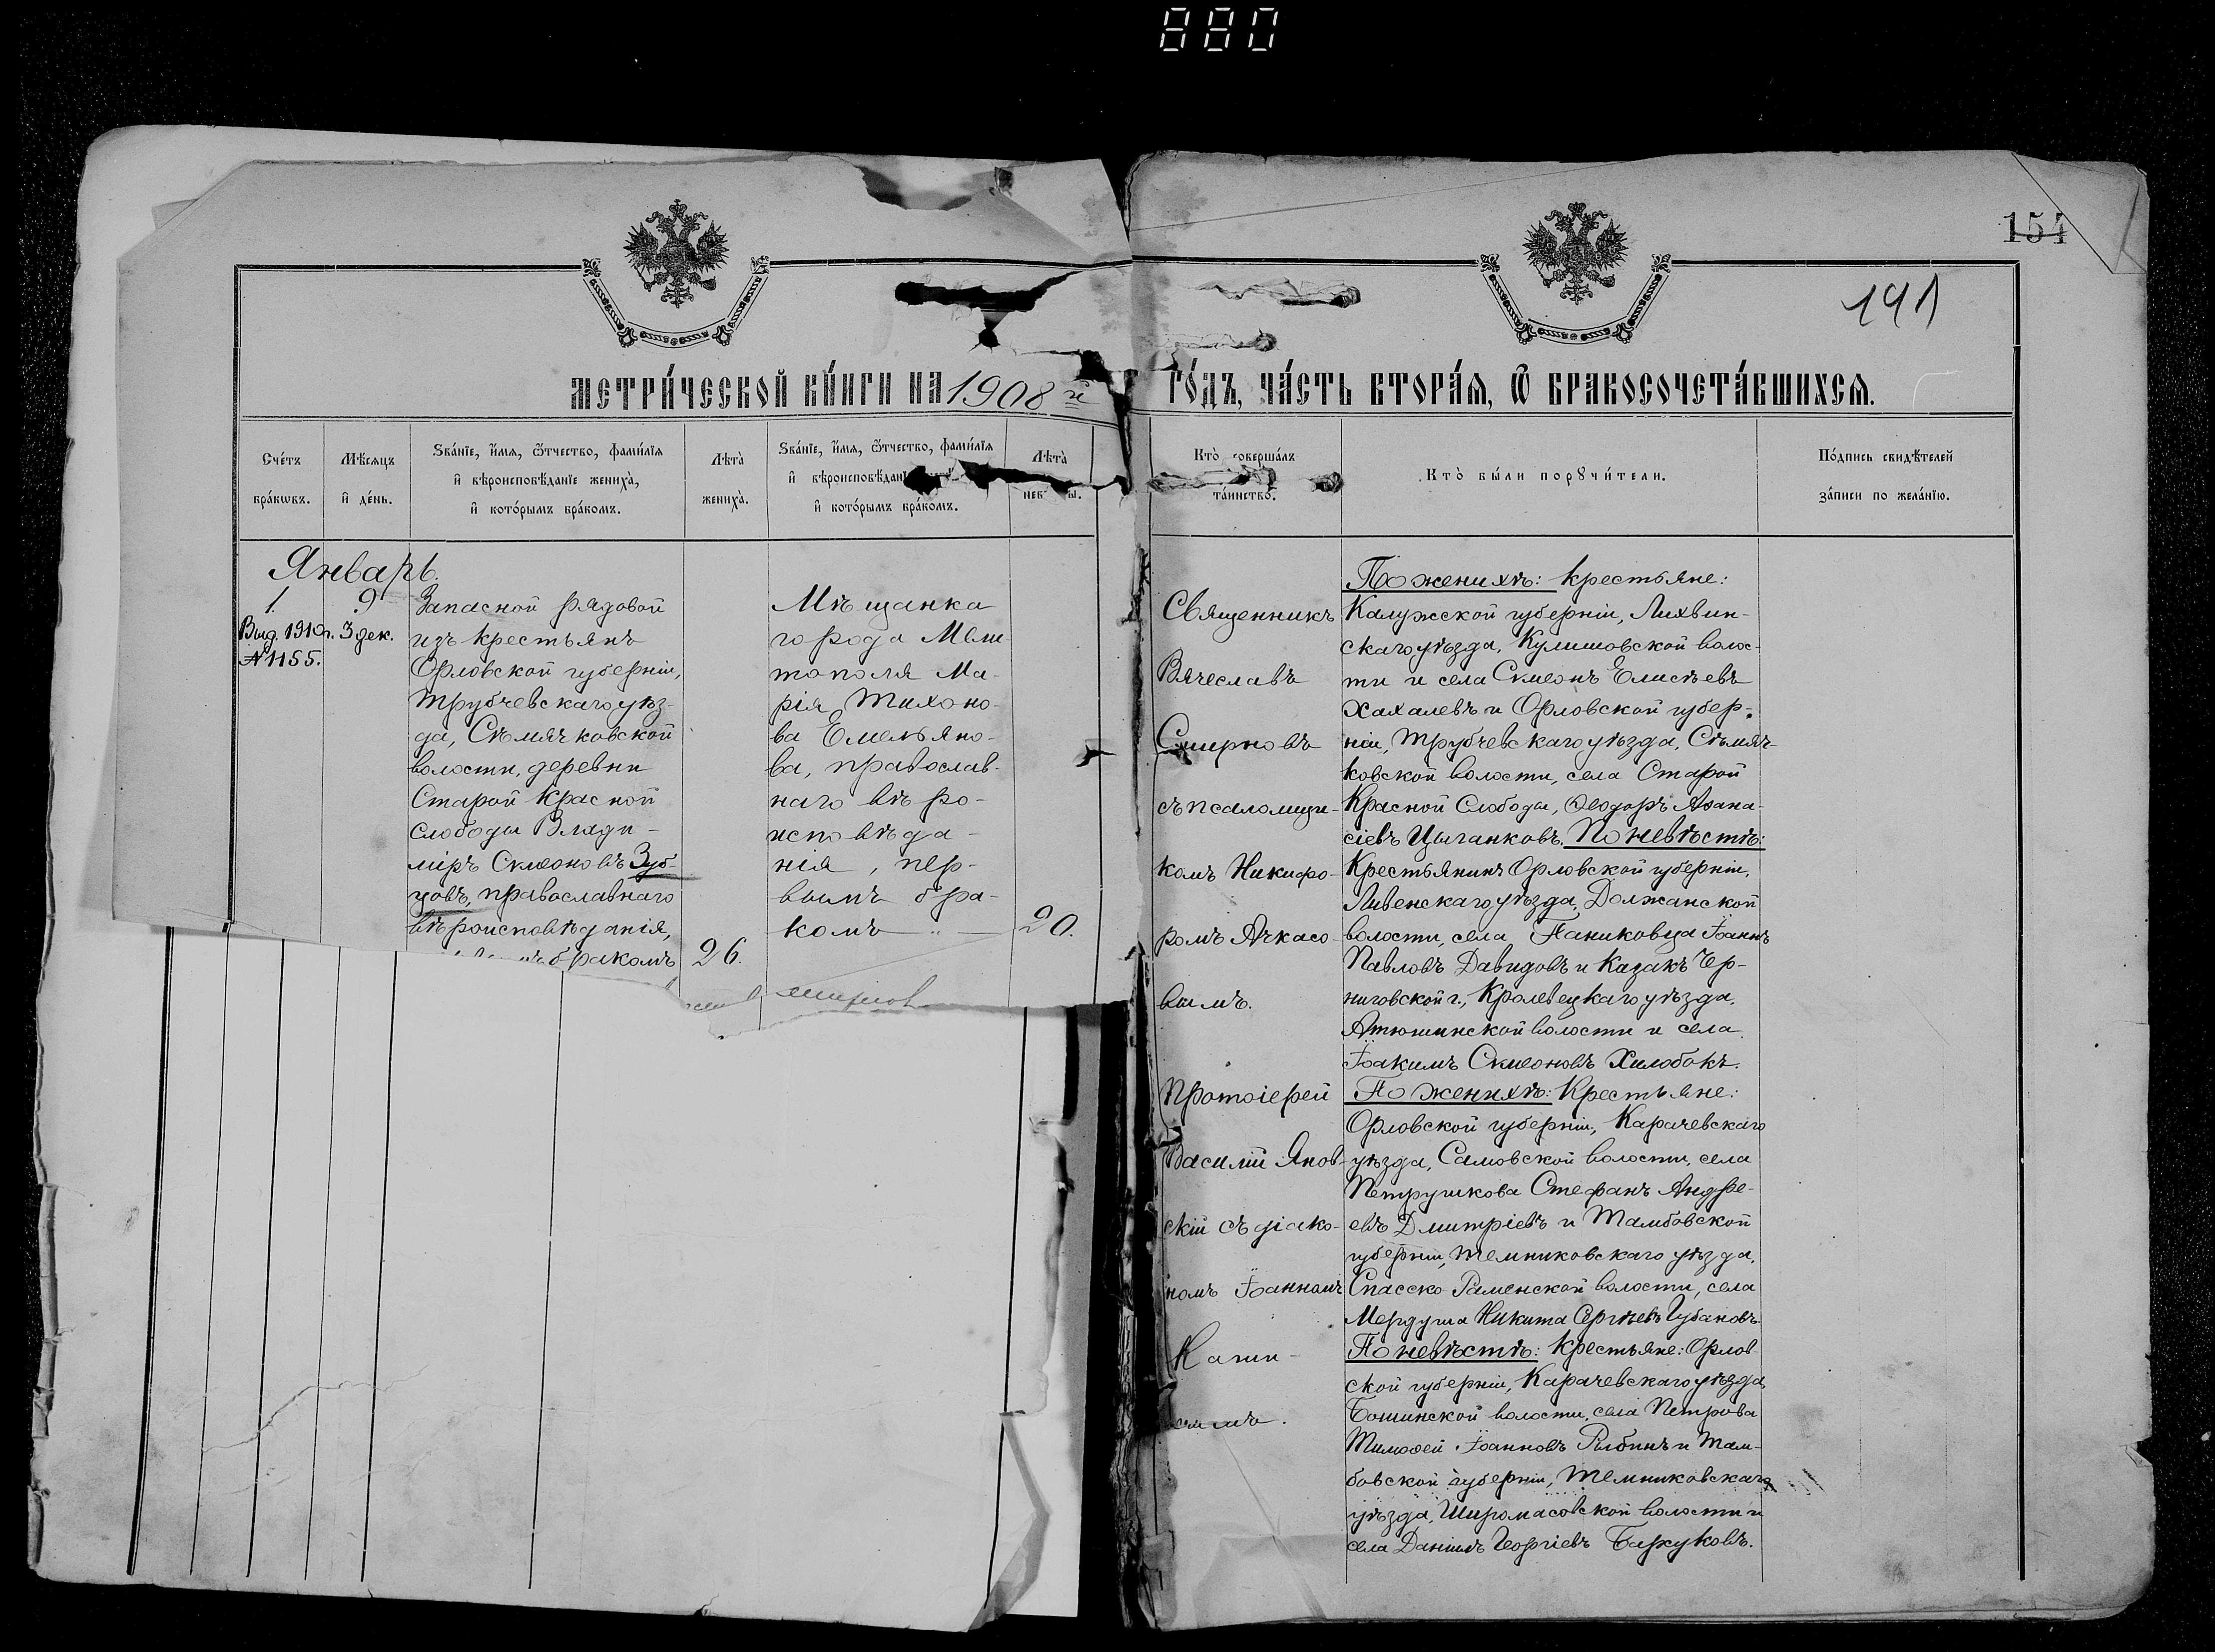 880
154
191
МЕТРИ́ЧЕСКОЙ КНИ́ГИ НА 1908 й
ГО́ДЪ, ЧА́СТЬ ВТОРА́Я, Ѿ БРАКОСОЧЕТА́ВШИХСЯ.
Сче́тъ бра́кѡвъ.
Мѣ́сяцъ и҆ де́нь.
Ѕва́нїе, и҆́мя, ѻ҆́тчество, фами́лїя
и҆ вѣроисповѣ́данїе жениха̀,
и҆ кото́рымъ бра́комъ.
Лѣта̀ жениха̀.
Ѕва́нїе, и҆́мя, ѻ҆́тчество, фами́лїя
и҆ вѣроисповѣ́дан
и҆ кото́рымъ бра́комъ.
Лѣта̀
Кто̀ соверша́лъ
та́инство.
Кто̀ бы́ли порꙋчи́тели.
По́дпись свидѣ́телей
за́писи по жела́нїю.
Январь.
1. 9
Выд. 1910г. 3 дек.
№ 1155.
Запасной рядовой
изъ крестьянъ
Орловской губерніи,
Трубчевскаго уѣз-
да, Сѣмячковской
волости, деревни
Старой Красной
Слободы Влади-
міръ Симеоновъ Зуб-
цовъ, православнаго
вѣроисповѣданія,
бракомъ
26.
Мѣщанка
города Мели-
тополя Ма-
рія Тихоно-
ва Емельяно-
ва, православ-
наго вѣро-
исповѣда-
нія, пер-
вымъ бра-
комъ
20.
Смирнов
Священникъ
Вячеславъ
Смирновъ
съ псаломщи-
комъ Никифо-
ромъ Ачкасо-
вымъ.
По женихѣ: крестьяне:
Калужской губерніи, Лихвин-
скаго уѣзда, Кулешовской волос-
ти и села Симеонъ Елисѣевъ
Хахалевъ и Орловской губер-
ніи, Трубчевскаго уѣзда, Сѣмяч-
ковской волости, села Старой
Красной Слободы, Ѳеодоръ Аѳана-
сіевъ Цыганковъ. По невѣстѣ:
Крестьянинъ Орловской губерніи,
Ливенскаго уѣзда, Должанской
волости, села Паниковца Іоаннъ
Павловъ Давидовъ и Казакъ Чер-
ниговской г., Кролевецкаго уѣзда,
Атюшинской волости и села
Іоакимъ Симеоновъ Хилобокъ.
Протоіерей
Василій Янов-
скій съ діако-
номъ Іоанномъ
По женихѣ: Крестьяне:
Орловской губерніи, Карачевскаго
уѣзда, Самовской волости, села
Петрушкова Стефанъ Андре-
евъ Дмитріевъ и Тамбовской
губерніи, Темниковскаго уѣзда,
Спасско-Раменской волости, села
Мердуша Никита Сергѣевъ Губановъ
По невѣстѣ: Крестьяне: Орлов-
ской губерніи, Карачевскаго уѣзда,
Бошинской волости, села Петрова
Тимоѳей Іоанновъ Рыбинъ и Там-
бовской губерніи, Темниковскаго
уѣзда, Широмасовской волости и
села Даніилъ Георгіевъ Баркуковъ.